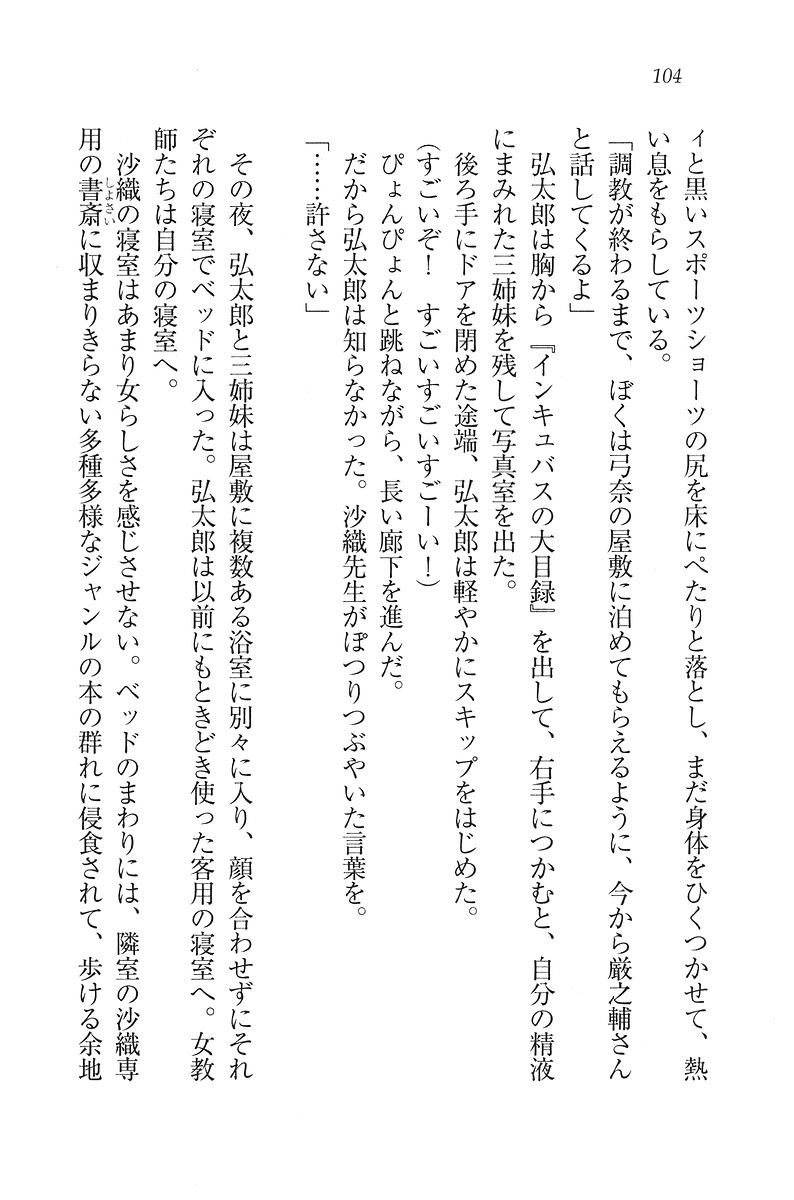 104
ィと黒いスポーツショーツの尻を床にぺたりと落とし、まだ身体をひくつかせて、熱
い息をもらしている。
「調教が終わるまで、ぼくは弓奈の屋敷に泊めてもらえるように、今から厳之輔さん
と話してくるよ」
弘太郎は胸から『インキュバスの大目録』を出して、右手につかむと、自分の精液
にまみれた三姉妹を残して写真室を出た。
後ろ手にドアを閉めた途端、弘太郎は軽やかにスキップをはじめた。
（すごいぞ！　すごいすごいすごーい！）
ぴょんぴょんと跳ねながら、長い廊下を進んだ。
だから弘太郎は知らなかった。沙織先生がぽつりつぶやいた言葉を。
「……許さない」
その夜、弘太郎と三姉妹は屋敷に複数ある浴室に別々に入り、顔を合わせずにそれ
ぞれの寝室でベッドに入った。弘太郎は以前にもときどき使った客用の寝室へ。女教
師たちは自分の寝室へ。
沙織の寝室はあまり女らしさを感じさせない。ベッドのまわりには、隣室の沙織専
用の書斎しよさいに収まりきらない多種多様なジャンルの本の群れに侵食されて、歩ける余地